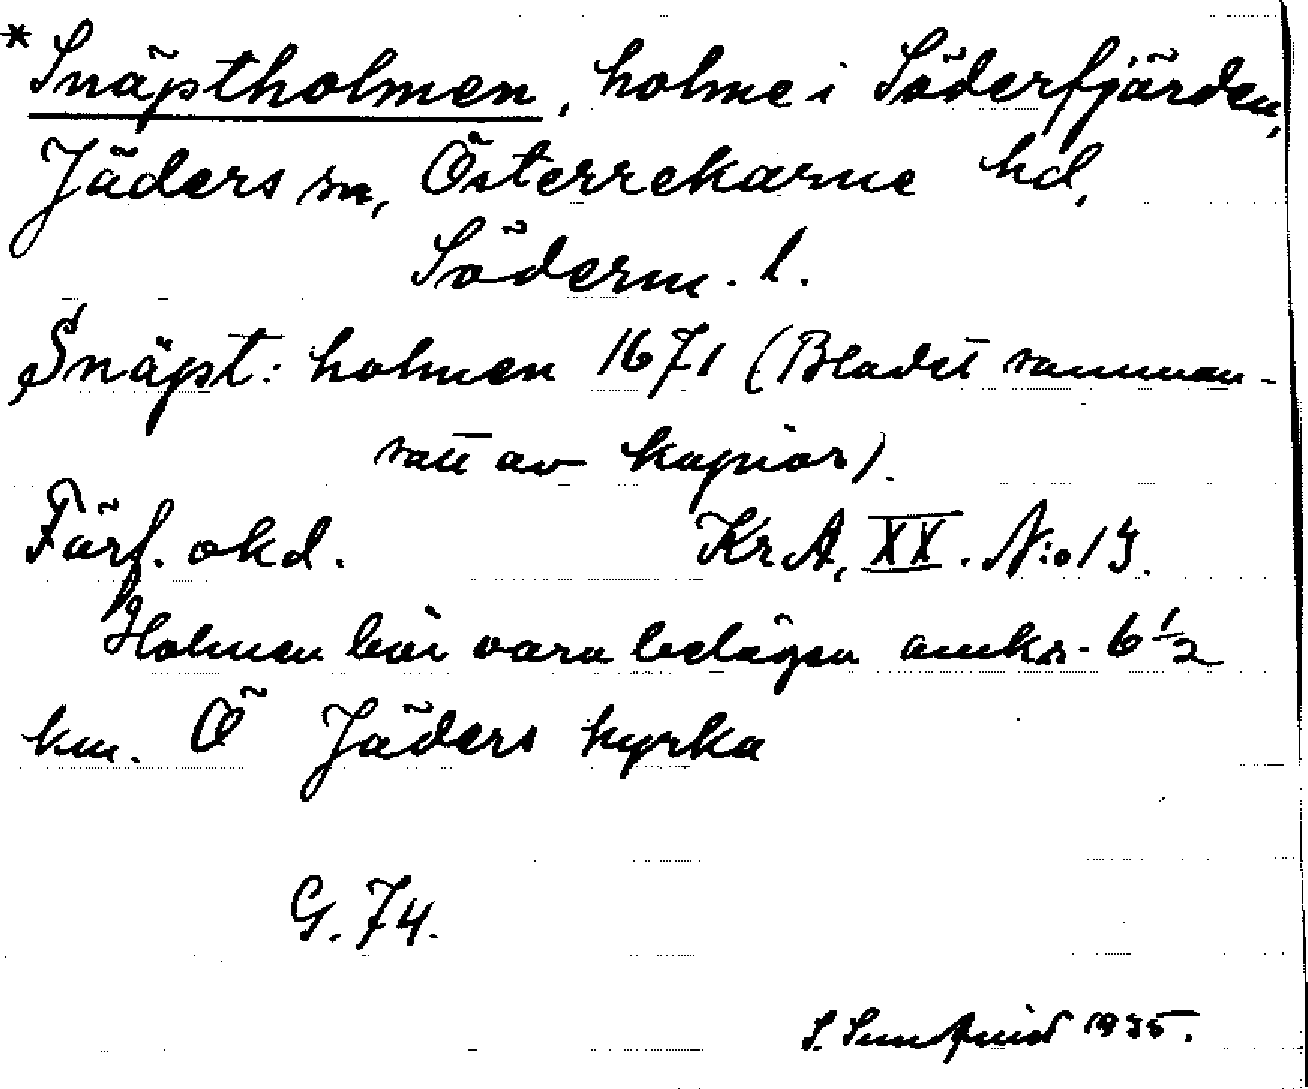 *Snäptholmen, holme i Söderfjärden,
Jäders sn, Österrekarne hd,
Söderm. l.
Snäpt: holmen 1671 (Bladet samman-
satt av kopior).
Förf. okd. KrA, XX. N:o 13.
Holmen bör vara belägen omkr. 6 1/2
km. Ö Jäders kyrka
G. 74.
S. 1935.